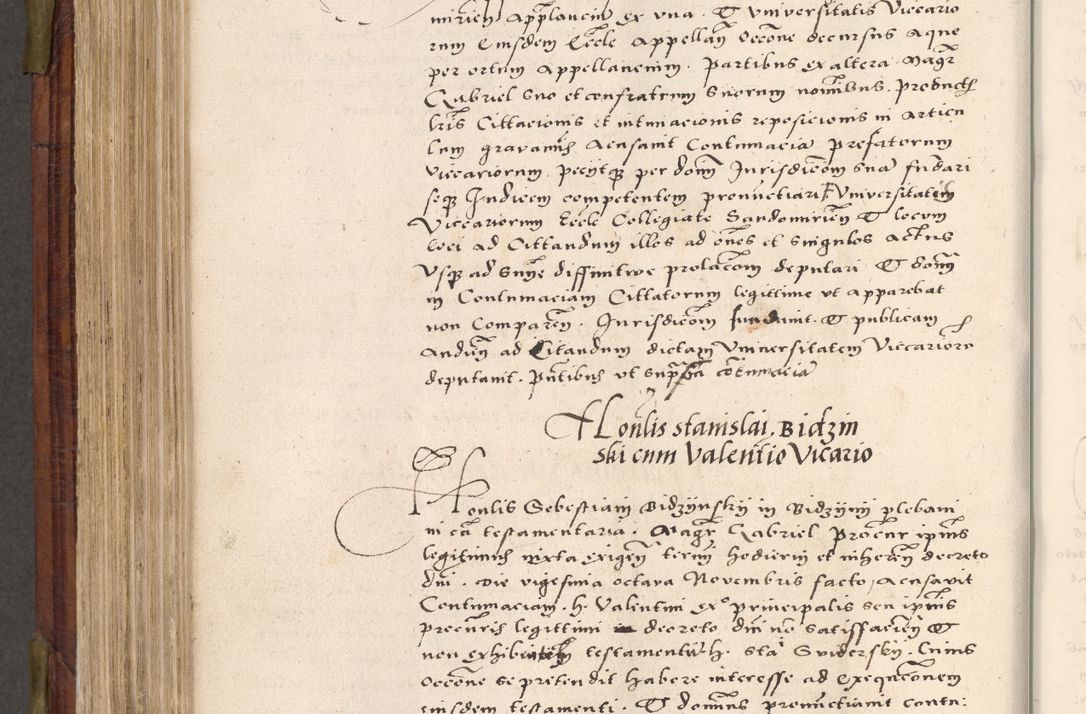 mirien Applancium ex vna. Et Vniversitatis Viccario
rum Eiusdem Eccle Appellan Occone decursus Aque
per ortum Appellancium. Partibus ex altera. Magr
Gabriel suo et confratrum suorum nominibus. Product
lris Cittacionis et intimacionis reposicionis in Articu
lum gravamis Acusavit Contumacia prefatorum
Viccariorum. pecijtq per donm Jurisdicconm sua fundari
seq Judicem competentem pronunctiari Vniversitatem
Viccariorum Eccle Collegiate Sandomirien Et locum
loci ad Cittandum illos ad ones et singulos Actus
Vsq ad snie diffinitive prolacom deputari Et donm
in Contumaciam Cittatorum legittime ut apparebat
non Comparen. Jurisdicom fundavit. Et publicam
Audien ad Citandum dictam Vniversitatem Viccarior
deputavit. Pntibus ut supra contumacia
Honlis stanislai. Bidzin
ski cum Valentio Vicario
Honlis Sebestiani Bidzijnskij in Bidzijnij plebani
in ca testamentaria. Magr Gabriel Procur ipius
legitimus iuxta exigen termi hodierni et inheren decreto
dni. Die vigesima octava Novembris facto, Acusavit
Contumaciam. h. Valentini ex principalis seu ipius
procuris legittimi decreto dni no satisfacien Et
non exhiben testamentu h. sta Suiderskij. Cuius
Occone se pretendit habere interesse ad exequcionem
eiusdem testamenti. Et dominus pronunctiavit contu: